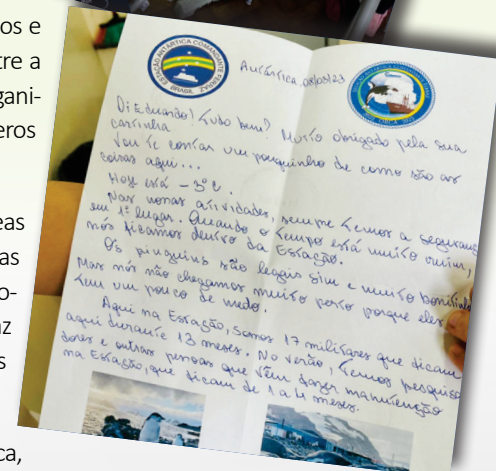 os e
tre a
gani-
eros
eas
as
o-
az
s
ca,
ESTAÇÃO ANTÁRTICA COMANDANTE FERRAZ
BRASIL
Antártica, 08/03/23
Oi Eduardo! Tudo bem? Muito obrigado pela sua
cartinha
Vou te contar um pouquinho de como são as
coisas aqui...
Hoje está -3°C.
Nas nossas atividades, sempre temos a segurança
em 1º lugar. Quando o tempo está muito ruim,
nós ficamos dentro da Estação.
Os pinguins são legais sim e muito bonitinhos
Mas nós não chegamos muito perto porque eles
tem um pouco de medo.
Aqui na Estação, somos 17 militares que ficam
aqui durante 13 meses. No verão, temos pesquisa
dores e outras pessoas que vêm fazer manutenção
na Estação, que ficam de 1 a 4 meses.